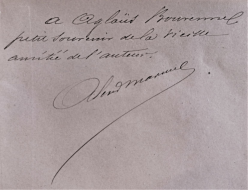 A Aglaüs Bouvenne
petit souvenir de la vieille
amitié de l'auteur.